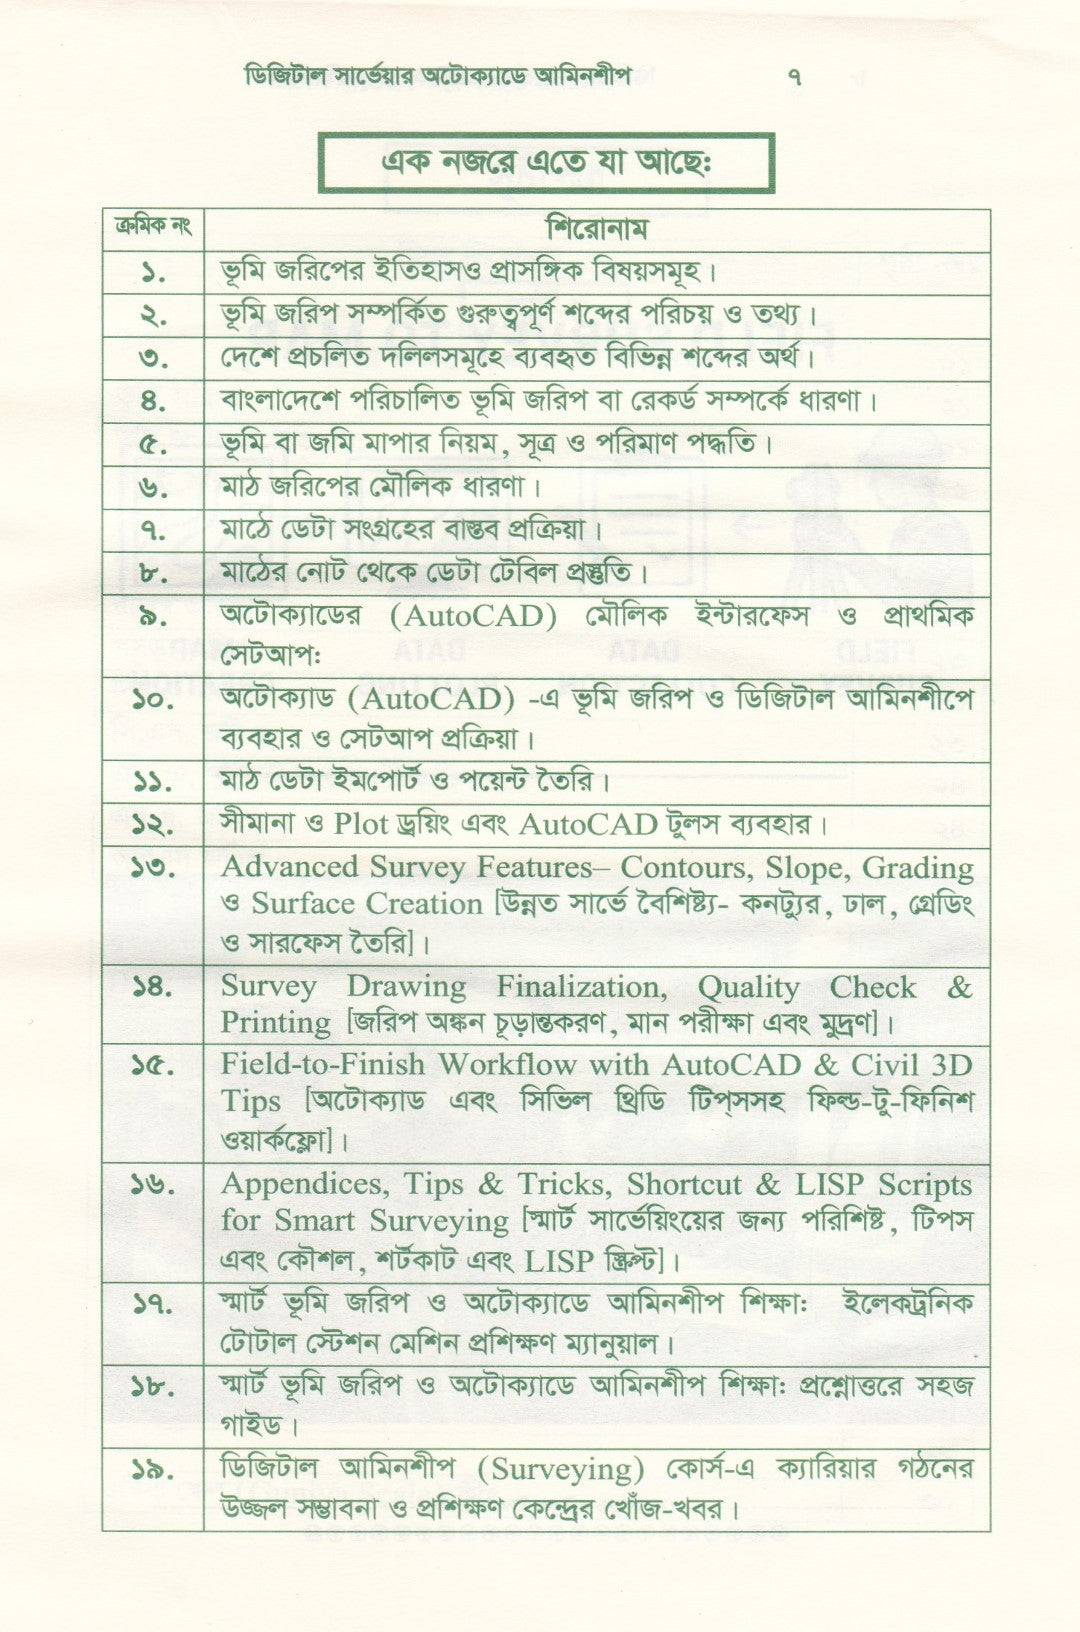 ডিজিটাল সার্ভেয়ার অটোক্যাডে আমিনশীপ ৭
এক নজরে এতে যা আছে:
ক্রমিক নং শিরোনাম
১. ভূমি জরিপের ইতিহাসও প্রাসঙ্গিক বিষয়সমূহ।
২. ভূমি জরিপ সম্পর্কিত গুরুত্বপূর্ণ শব্দের পরিচয় ও তথ্য।
৩. দেশে প্রচলিত দলিলসমূহে ব্যবহৃত বিভিন্ন শব্দের অর্থ।
৪. বাংলাদেশে পরিচালিত ভূমি জরিপ বা রেকর্ড সম্পর্কে ধারণা।
৫. ভূমি বা জমি মাপার নিয়ম, সূত্র ও পরিমাণ পদ্ধতি।
৬. মাঠ জরিপের মৌলিক ধারণা।
৭. মাঠে ডেটা সংগ্রহের বাস্তব প্রক্রিয়া।
৮. মাঠের নোট থেকে ডেটা টেবিল প্রস্তুতি।
৯. অটোক্যাডের (AutoCAD) মৌলিক ইন্টারফেস ও প্রাথমিক
সেটআপ:
১০. অটোক্যাড (AutoCAD) -এ ভূমি জরিপ ও ডিজিটাল আমিনশীপে
ব্যবহার ও সেটআপ প্রক্রিয়া।
১১. মাঠ ডেটা ইমপোর্ট ও পয়েন্ট তৈরি।
১২. সীমানা ও Plot ড্রয়িং এবং AutoCAD টুলস ব্যবহার।
১৩. Advanced Survey Features– Contours, Slope, Grading
ও Surface Creation [উন্নত সার্ভে বৈশিষ্ট্য- কনট্যুর, ঢাল, গ্রেডিং
ও সারফেস তৈরি]।
১৪. Survey Drawing Finalization, Quality Check &
Printing [জরিপ অঙ্কন চূড়ান্তকরণ, মান পরীক্ষা এবং মুদ্রণ]।
১৫. Field-to-Finish Workflow with AutoCAD & Civil 3D
Tips [অটোক্যাড এবং সিভিল থ্রিডি টিপ্‌সসহ ফিল্ড-টু-ফিনিশ
ওয়ার্কফ্লো]।
১৬. Appendices, Tips & Tricks, Shortcut & LISP Scripts
for Smart Surveying [স্মার্ট সার্ভেয়িংয়ের জন্য পরিশিষ্ট, টিপস
এবং কৌশল, শর্টকাট এবং LISP স্ক্রিপ্ট]।
১৭. স্মার্ট ভূমি জরিপ ও অটোক্যাডে আমিনশীপ শিক্ষা: ইলেকট্রনিক
টোটাল স্টেশন মেশিন প্রশিক্ষণ ম্যানুয়াল।
১৮. স্মার্ট ভূমি জরিপ ও অটোক্যাডে আমিনশীপ শিক্ষা: প্রশ্নোত্তরে সহজ
গাইড।
১৯. ডিজিটাল আমিনশীপ (Surveying) কোর্স-এ ক্যারিয়ার গঠনের
উজ্জল সম্ভাবনা ও প্রশিক্ষণ কেন্দ্রের খোঁজ-খবর।